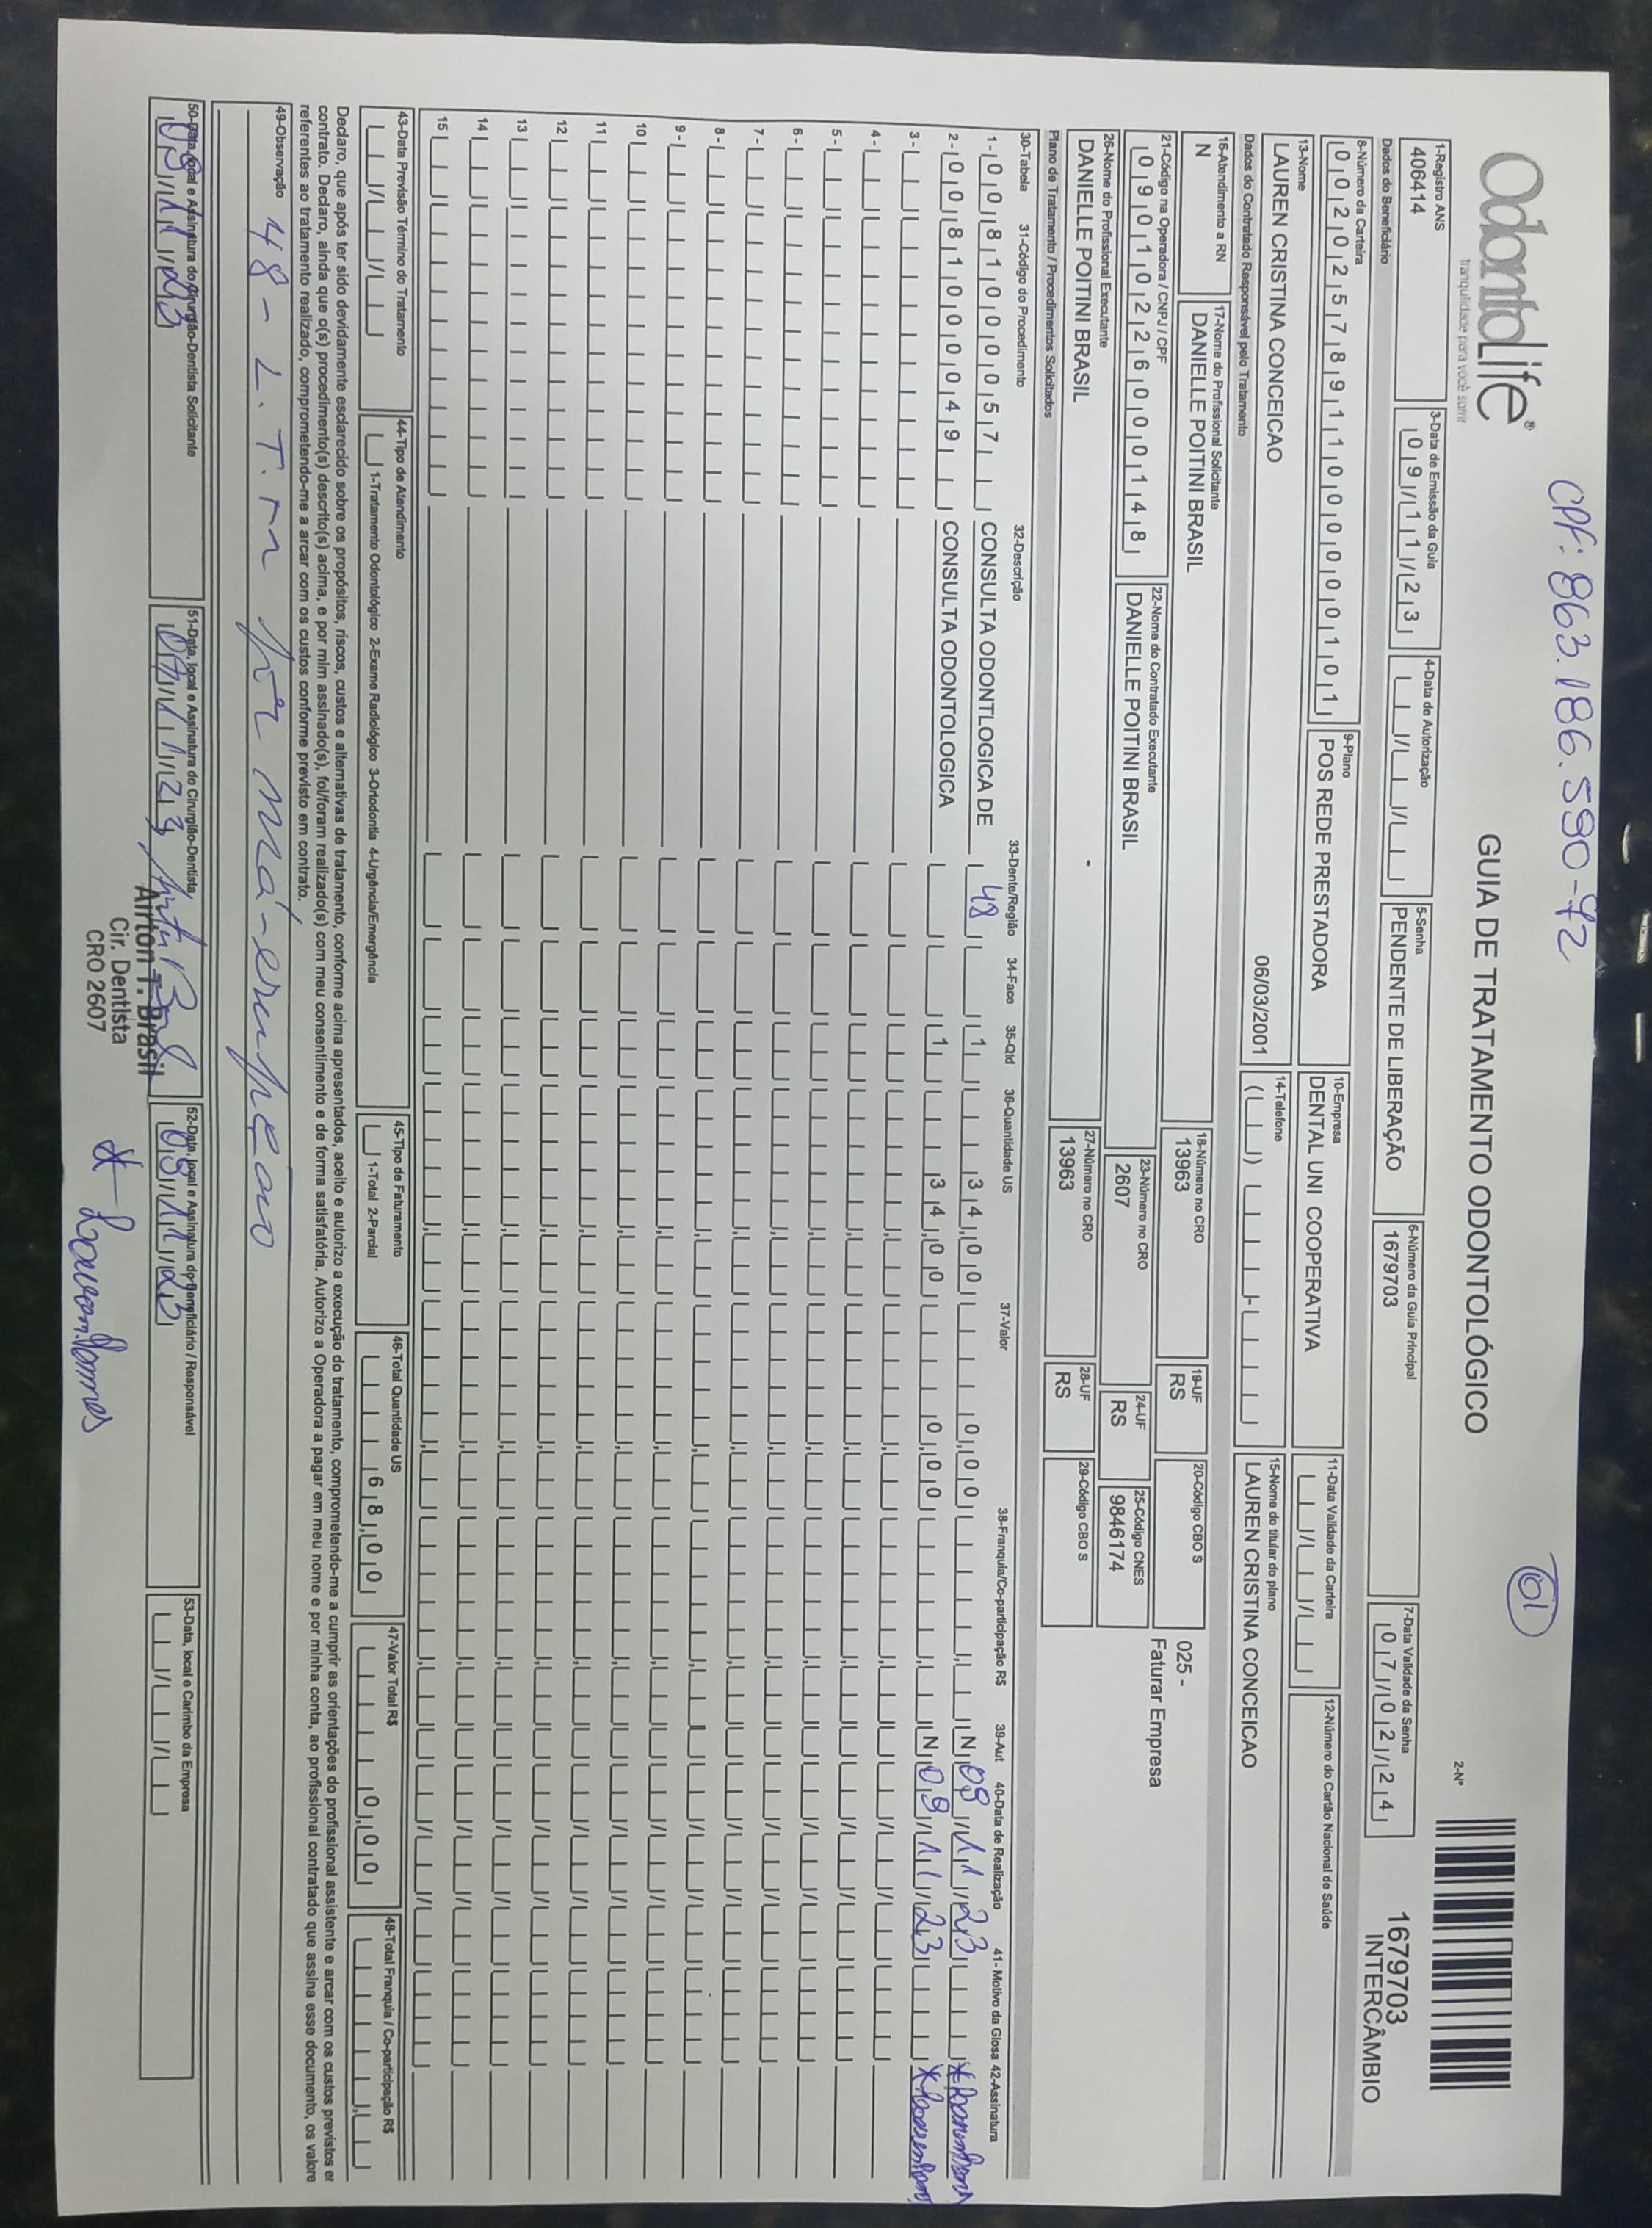 CPF: 863.186.590-72
OdontoLife®
tranquilidade para você sorrir
GUIA DE TRATAMENTO ODONTOLÓGICO
01
2-Nº
1679703
INTERCÂMBIO
1-Registro ANS
406414
3-Data de Emissão da Guia
09/11/23
4-Data de Autorização
5-Senha
PENDENTE DE LIBERAÇÃO
6-Número da Guia Principal
1679703
7-Data Validade da Senha
07/02/24
Dados do Beneficiário
8-Número da Carteira
00202578911000000101
9-Plano
POS REDE PRESTADORA
10-Empresa
DENTAL UNI COOPERATIVA
11-Data Validade da Carteira
12-Número do Cartão Nacional de Saúde
13-Nome
LAUREN CRISTINA CONCEICAO
06/03/2001
14-Telefone
15-Nome do titular do plano
LAUREN CRISTINA CONCEICAO
Dados do Contratado Responsável pelo Tratamento
16-Atendimento a RN
N
17-Nome do Profissional Solicitante
DANIELLE POITINI BRASIL
18-Número no CRO
13963
19-UF
RS
20-Código CBO S
025 -
Faturar Empresa
21-Código na Operadora / CNPJ / CPF
09010226000148
22-Nome do Contratado Executante
DANIELLE POITINI BRASIL
23-Número no CRO
2607
24-UF
RS
25-Código CNES
9846174
26-Nome do Profissional Executante
DANIELLE POITINI BRASIL
27-Número no CRO
13963
28-UF
RS
29-Código CBO S
Plano de Tratamento / Procedimentos Solicitados
30-Tabela 31-Código do Procedimento 32-Descrição 33-Dente/Região 34-Face 35-Qtd 36-Quantidade US 37-Valor 38-Franquia/Co-participação R$ 39-Aut 40-Data de Realização 41- Motivo da Glosa 42-Assinatura
1- 00 81000057 CONSULTA ODONTLOGICA DE 48 1 34,00 0,00 N 09/11/23
2- 00 81000049 CONSULTA ODONTOLOGICA 1 34,00 0,00 N 09/11/23
3-
4-
5-
6-
7-
8-
9-
10
11
12
13
14
15
43-Data Previsão Término do Tratamento
44-Tipo de Atendimento
1-Tratamento Odontológico 2-Exame Radiológico 3-Ortodontia 4-Urgência/Emergência
45-Tipo de Faturamento
1-Total 2-Parcial
46-Total Quantidade US
68,00
47-Valor Total R$
0,00
48-Total Franquia / Co-participação R$
Declaro, que após ter sido devidamente esclarecido sobre os propósitos, riscos, custos e alternativas de tratamento, conforme acima apresentados, aceito e autorizo a execução do tratamento, comprometendo-me a cumprir as orientações do profissional assistente e arcar com os custos previstos em
contrato. Declaro, ainda que o(s) procedimento(s) descrito(s) acima, e por mim assinado(s), foi/foram realizado(s) com meu consentimento e de forma satisfatória. Autorizo a Operadora a pagar em meu nome e por minha conta, ao profissional contratado que assina esse documento, os valore
referentes ao tratamento realizado, comprometendo-me a arcar com os custos conforme previsto em contrato.
49-Observação
48 - L.T.M por má-erupção
50-Data, local e Assinatura do Cirurgião-Dentista Solicitante
09/11/23
51-Data, local e Assinatura do Cirurgião-Dentista
09/11/23
Airton T. Brasil
Cir. Dentista
CRO 2607
52-Data, local e Assinatura do Beneficiário / Responsável
09/11/23
53-Data, local e Carimbo da Empresa